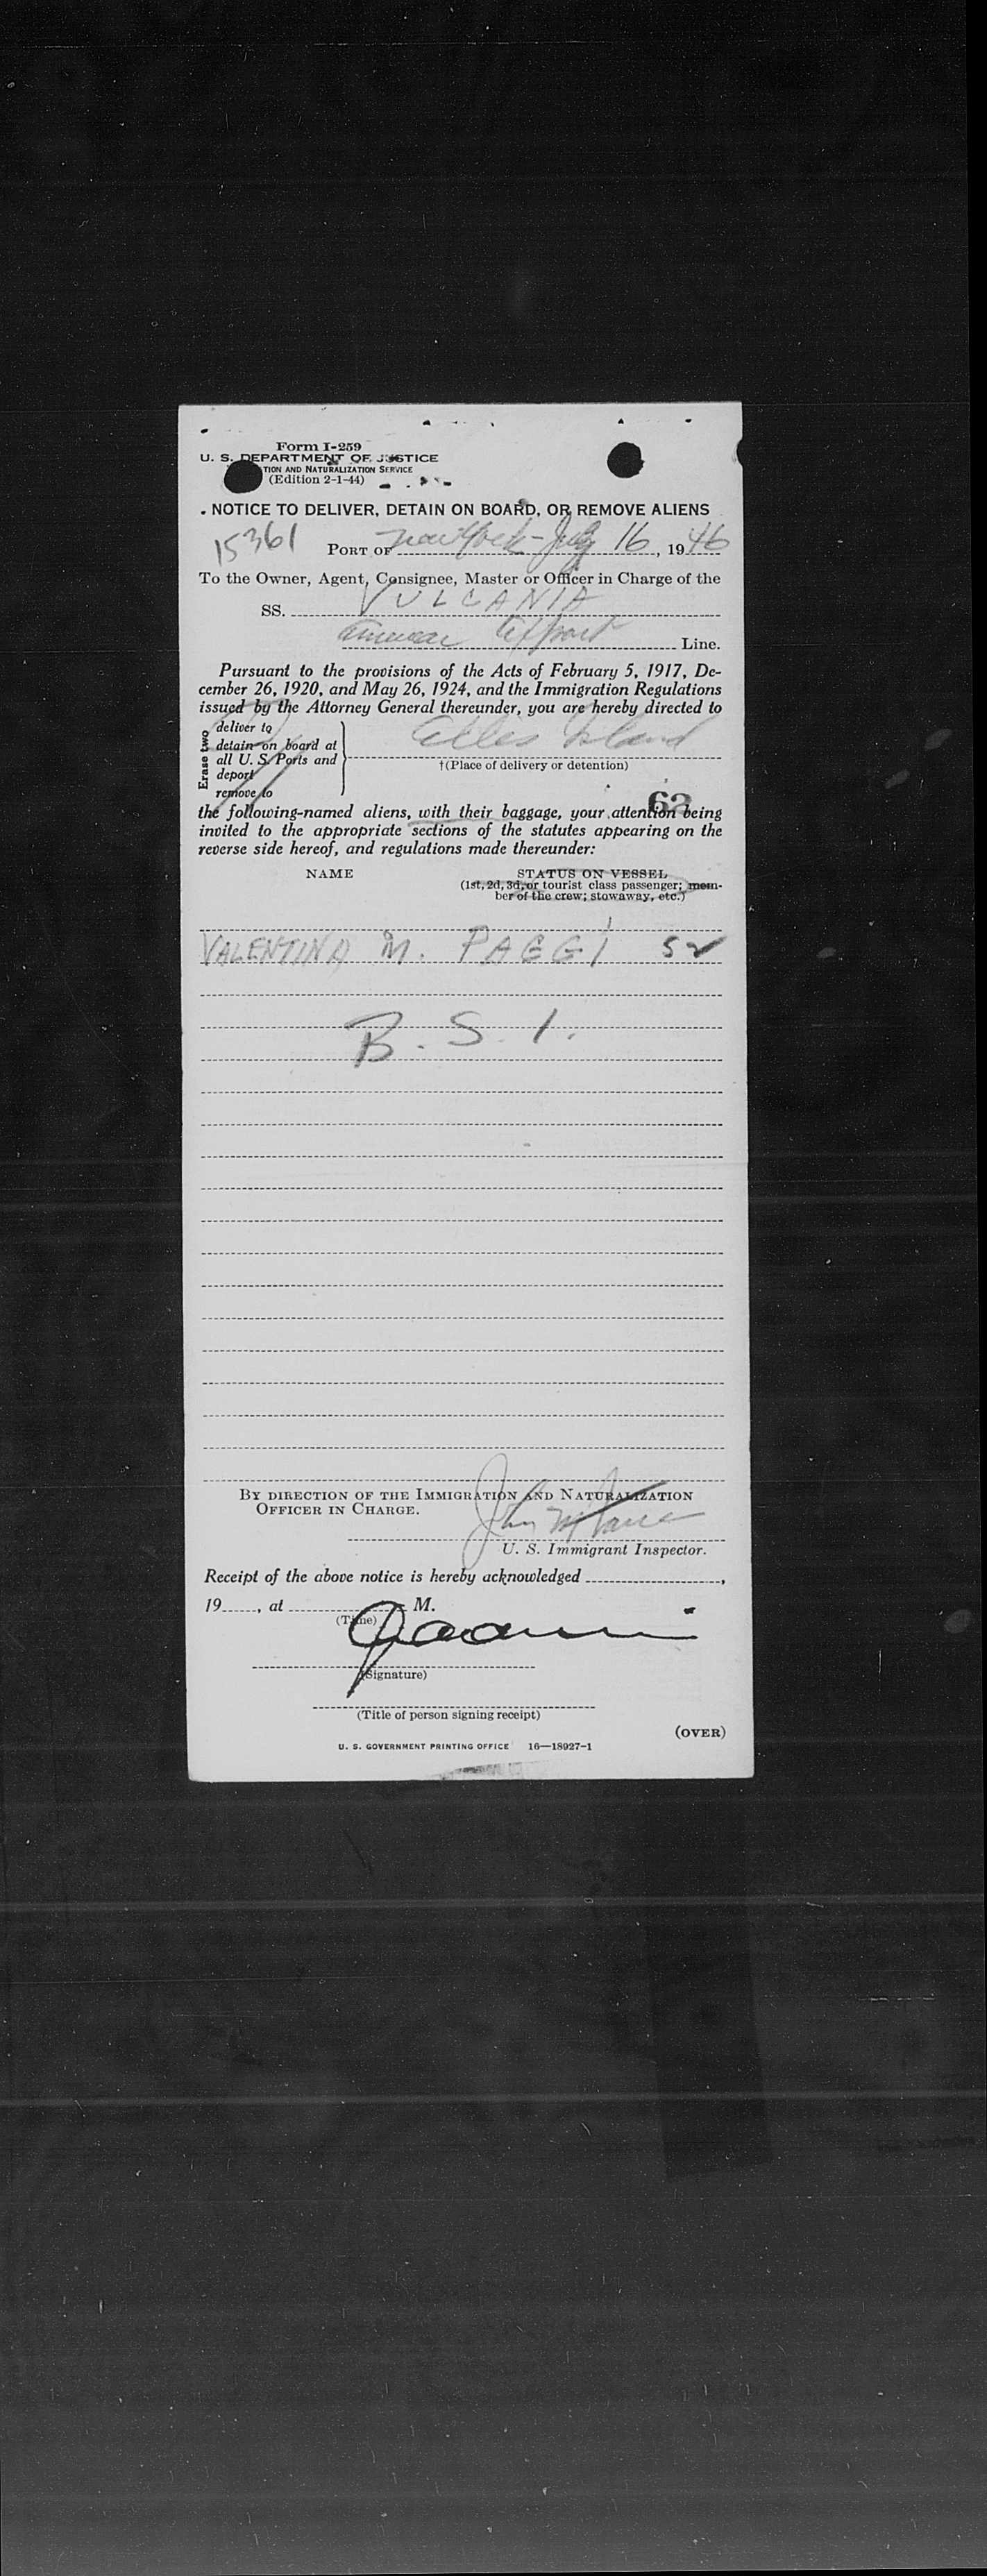 Form I-259
U. S. DEPARTMENT OF JUSTICE
TION AND NATURALIZATION SERVICE
(Edition 2-1-44)
NOTICE TO DELIVER, DETAIN ON BOARD, OR REMOVE ALIENS
15361
PORT OF New York - July 16, 1946
To the Owner, Agent, Consignee, Master or Officer in Charge of the
SS. VULCANIA
American Export Line.
Pursuant to the provisions of the Acts of February 5, 1917, De-
cember 26, 1920, and May 26, 1924, and the Immigration Regulations
issued by the Attorney General thereunder, you are hereby directed to
Erase two
deliver to
detain on board at
all U. S. Ports and
deport
remove to
Ellis Island
†(Place of delivery or detention)
62
the following-named aliens, with their baggage, your attention being
invited to the appropriate sections of the statutes appearing on the
reverse side hereof, and regulations made thereunder:
NAME STATUS ON VESSEL
(1st, 2d, 3d, or tourist class passenger; mem-
ber of the crew; stowaway, etc.)
VALENTINA M. PAGGI 52
B. S. I.
BY DIRECTION OF THE IMMIGRATION AND NATURALIZATION
OFFICER IN CHARGE.
John
U. S. Immigrant Inspector.
Receipt of the above notice is hereby acknowledged ,
19 , at M.
(Time)
(Signature)
(Title of person signing receipt)
(OVER)
U. S. GOVERNMENT PRINTING OFFICE 16—18927-1